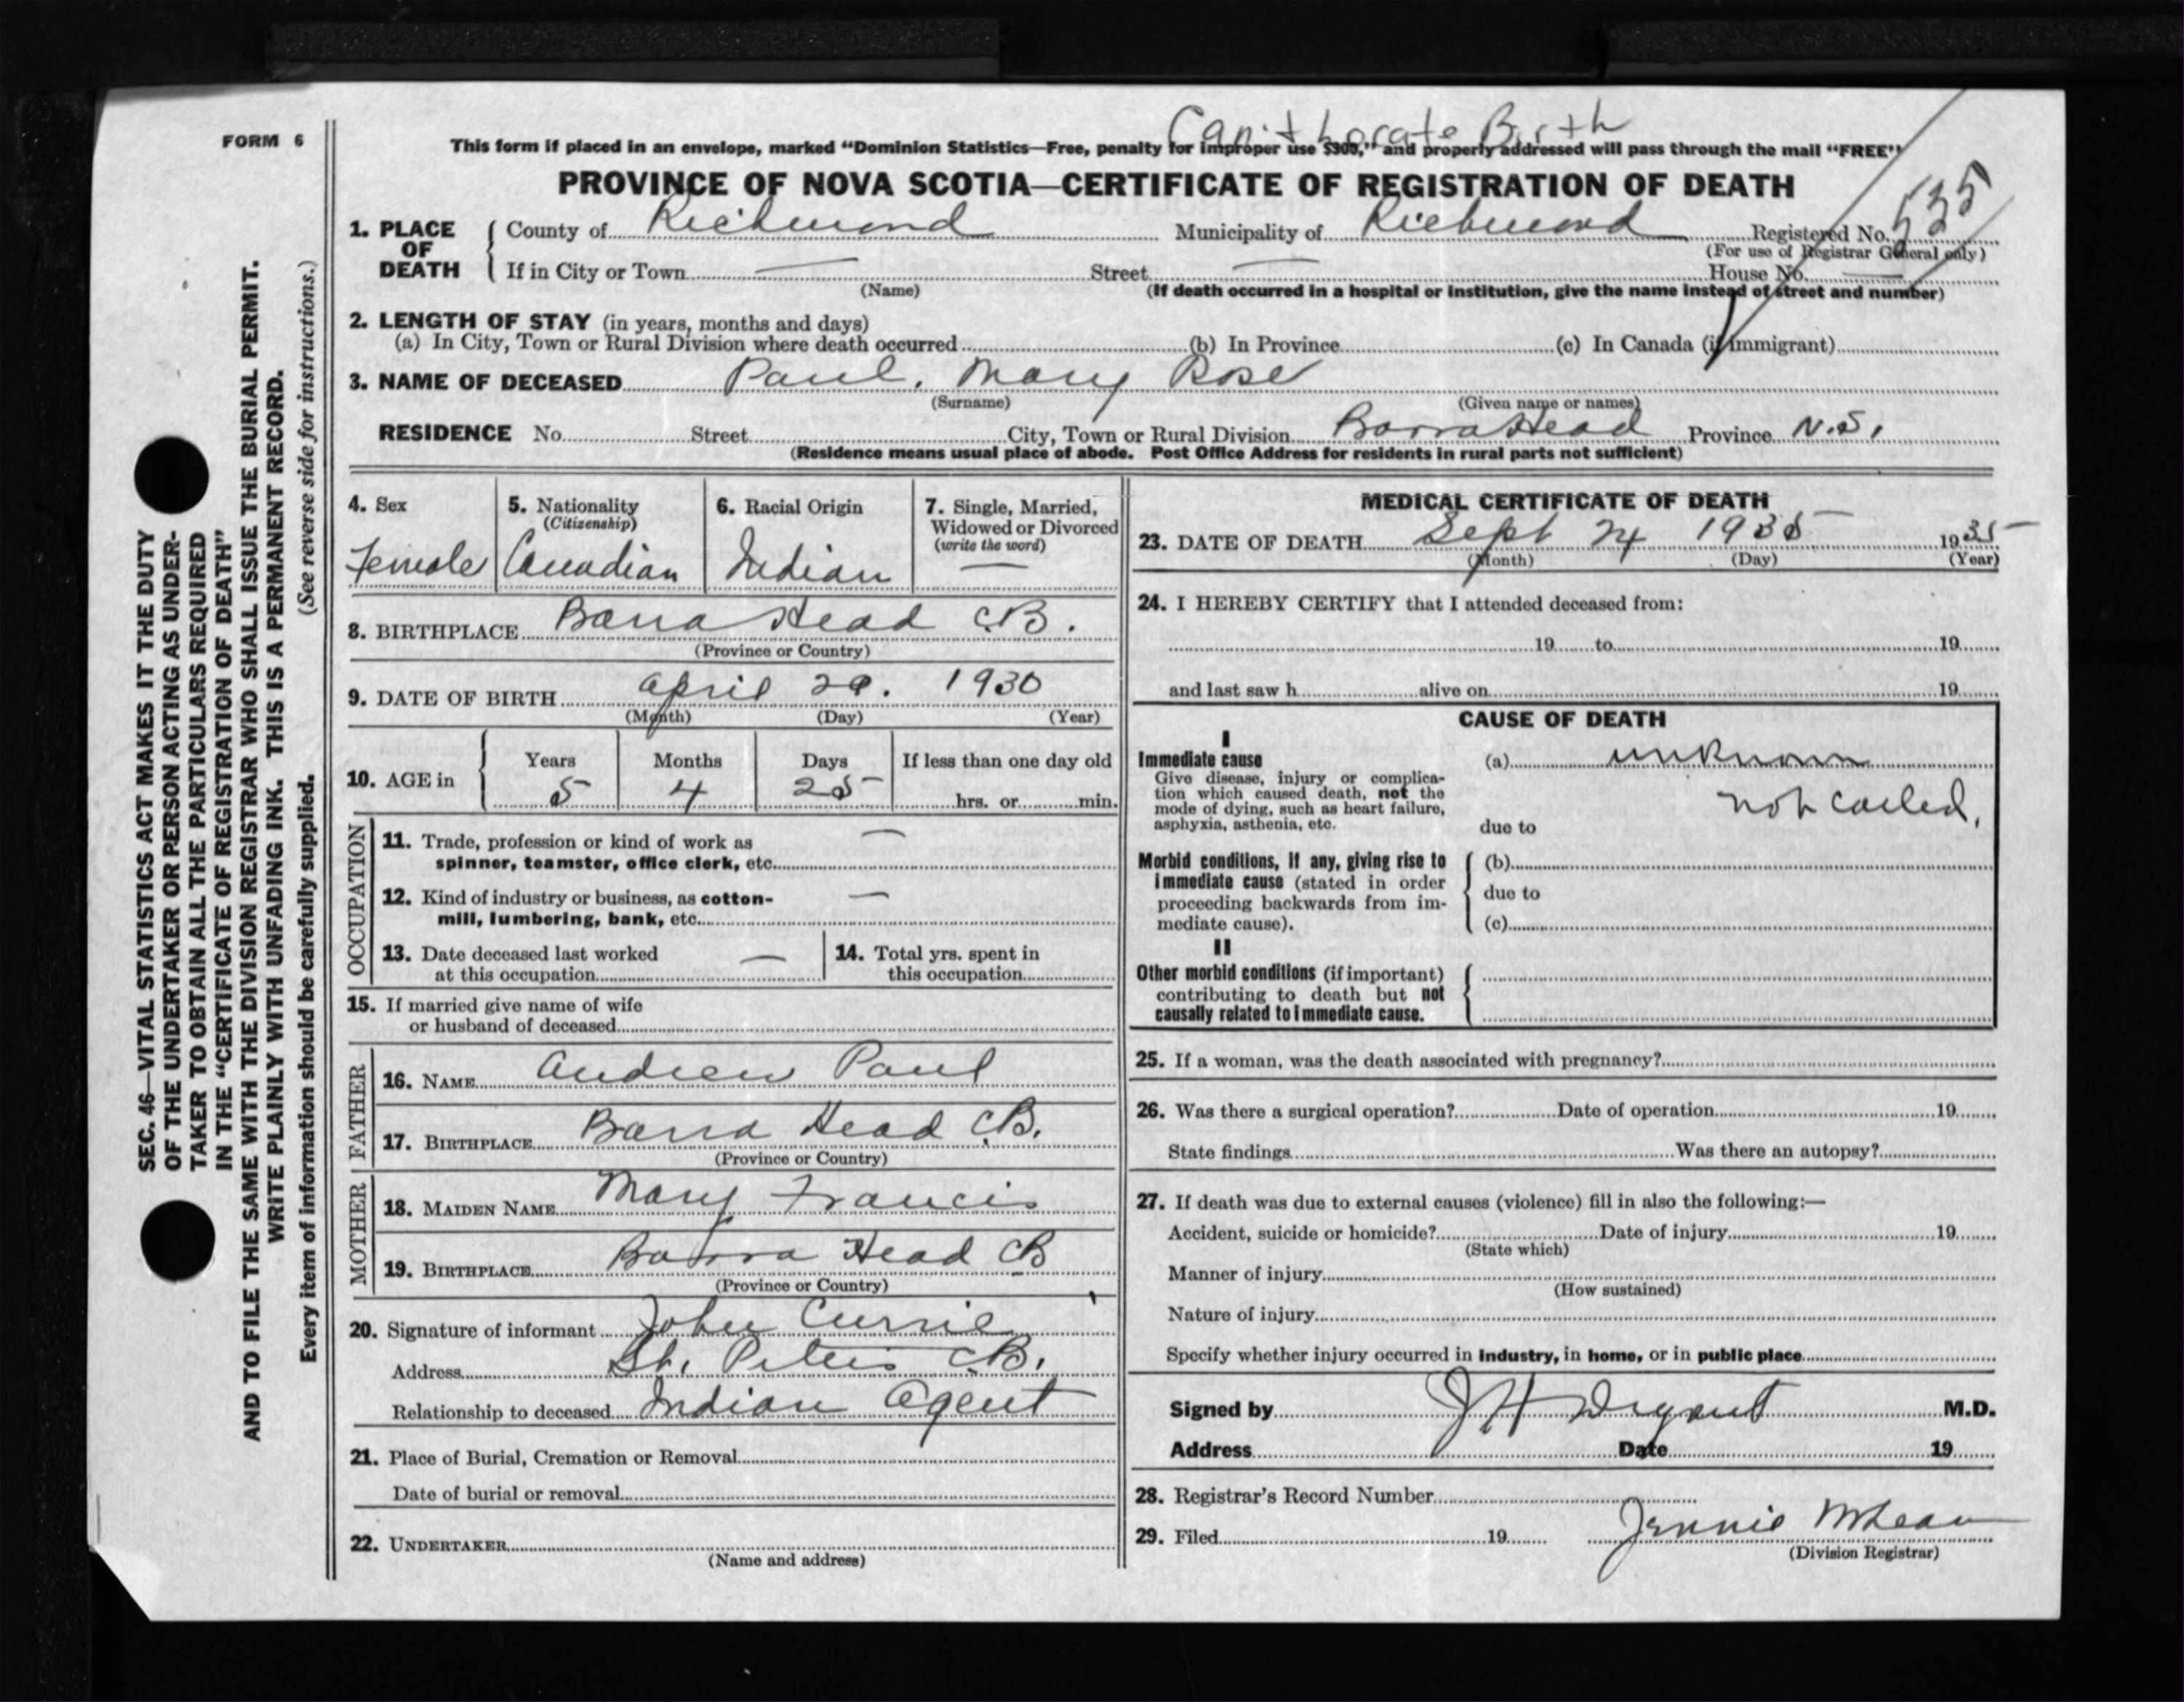 FORM 6
Can't locate Birth
This form if placed in an envelope, marked “Dominion Statistics—Free, penalty for improper use $300,” and properly addressed will pass through the mail “FREE”
PROVINCE OF NOVA SCOTIA—CERTIFICATE OF REGISTRATION OF DEATH
1. PLACE OF DEATH { County of Richmond Municipality of Richmond Registered No. 535
(For use of Registrar General only)
If in City or Town — Street — House No. —
(Name) (If death occurred in a hospital or institution, give the name instead of street and number)
2. LENGTH OF STAY (in years, months and days)
(a) In City, Town or Rural Division where death occurred (b) In Province (c) In Canada (if immigrant)
3. NAME OF DECEASED Paul, Mary Rose
(Surname) (Given name or names)
RESIDENCE No. Street City, Town or Rural Division Barra Head Province N.S.
(Residence means usual place of abode. Post Office Address for residents in rural parts not sufficient)
4. Sex 5. Nationality 6. Racial Origin 7. Single, Married,
(Citizenship) Widowed or Divorced
(write the word)
Female Canadian Indian —
8. BIRTHPLACE Barra Head C.B.
(Province or Country)
9. DATE OF BIRTH April 29. 1930
(Month) (Day) (Year)
10. AGE in { Years Months Days If less than one day old
5 4 25 hrs. or min.
OCCUPATION
11. Trade, profession or kind of work as —
spinner, teamster, office clerk, etc.
12. Kind of industry or business, as cotton- —
mill, lumbering, bank, etc.
13. Date deceased last worked — 14. Total yrs. spent in
at this occupation this occupation
15. If married give name of wife
or husband of deceased
FATHER
16. NAME Andrew Paul
17. BIRTHPLACE Barra Head C.B.
(Province or Country)
MOTHER
18. MAIDEN NAME Mary Francis
19. BIRTHPLACE Barra Head CB
(Province or Country)
20. Signature of informant John Currie
Address St. Peters C.B.
Relationship to deceased Indian Agent
21. Place of Burial, Cremation or Removal
Date of burial or removal
22. UNDERTAKER
(Name and address)
MEDICAL CERTIFICATE OF DEATH
23. DATE OF DEATH Sept 24 1935 1935
(Month) (Day) (Year)
24. I HEREBY CERTIFY that I attended deceased from:
19 to 19
and last saw h alive on 19
CAUSE OF DEATH
I
Immediate cause (a) unknown
Give disease, injury or complica-
tion which caused death, not the not called.
mode of dying, such as heart failure,
asphyxia, asthenia, etc. due to
Morbid conditions, if any, giving rise to { (b)
immediate cause (stated in order due to
proceeding backwards from im-
mediate cause). (c)
II
Other morbid conditions (if important) {
contributing to death but not
causally related to immediate cause.
25. If a woman, was the death associated with pregnancy?
26. Was there a surgical operation? Date of operation 19
State findings Was there an autopsy?
27. If death was due to external causes (violence) fill in also the following:—
Accident, suicide or homicide? Date of injury 19
(State which)
Manner of injury
(How sustained)
Nature of injury
Specify whether injury occurred in industry, in home, or in public place
Signed by J H M.D.
Address Date 19
28. Registrar's Record Number
29. Filed 19 Jennie McLean
(Division Registrar)
SEC. 46—VITAL STATISTICS ACT MAKES IT THE DUTY
OF THE UNDERTAKER OR PERSON ACTING AS UNDER-
TAKER TO OBTAIN ALL THE PARTICULARS REQUIRED
IN THE “CERTIFICATE OF REGISTRATION OF DEATH”
AND TO FILE THE SAME WITH THE DIVISION REGISTRAR WHO SHALL ISSUE THE BURIAL PERMIT.
WRITE PLAINLY WITH UNFADING INK. THIS IS A PERMANENT RECORD.
Every item of information should be carefully supplied. (See reverse side for instructions.)